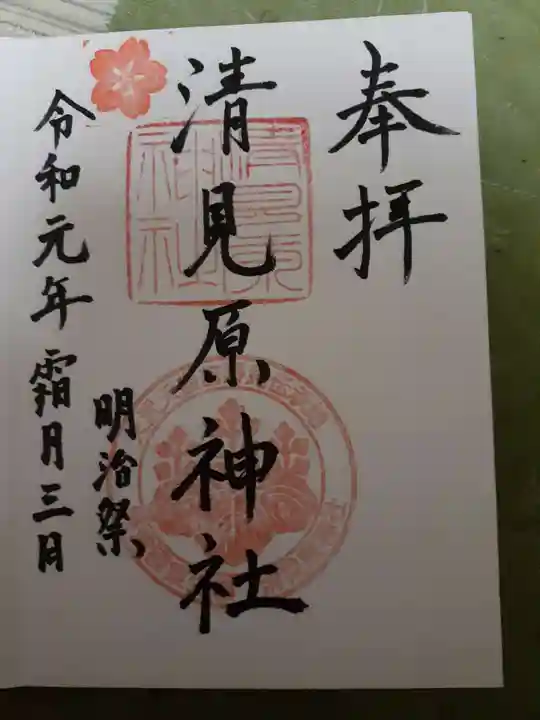 奉拝
清見原神社
明治祭
令和元年霜月三日
清見原
神社